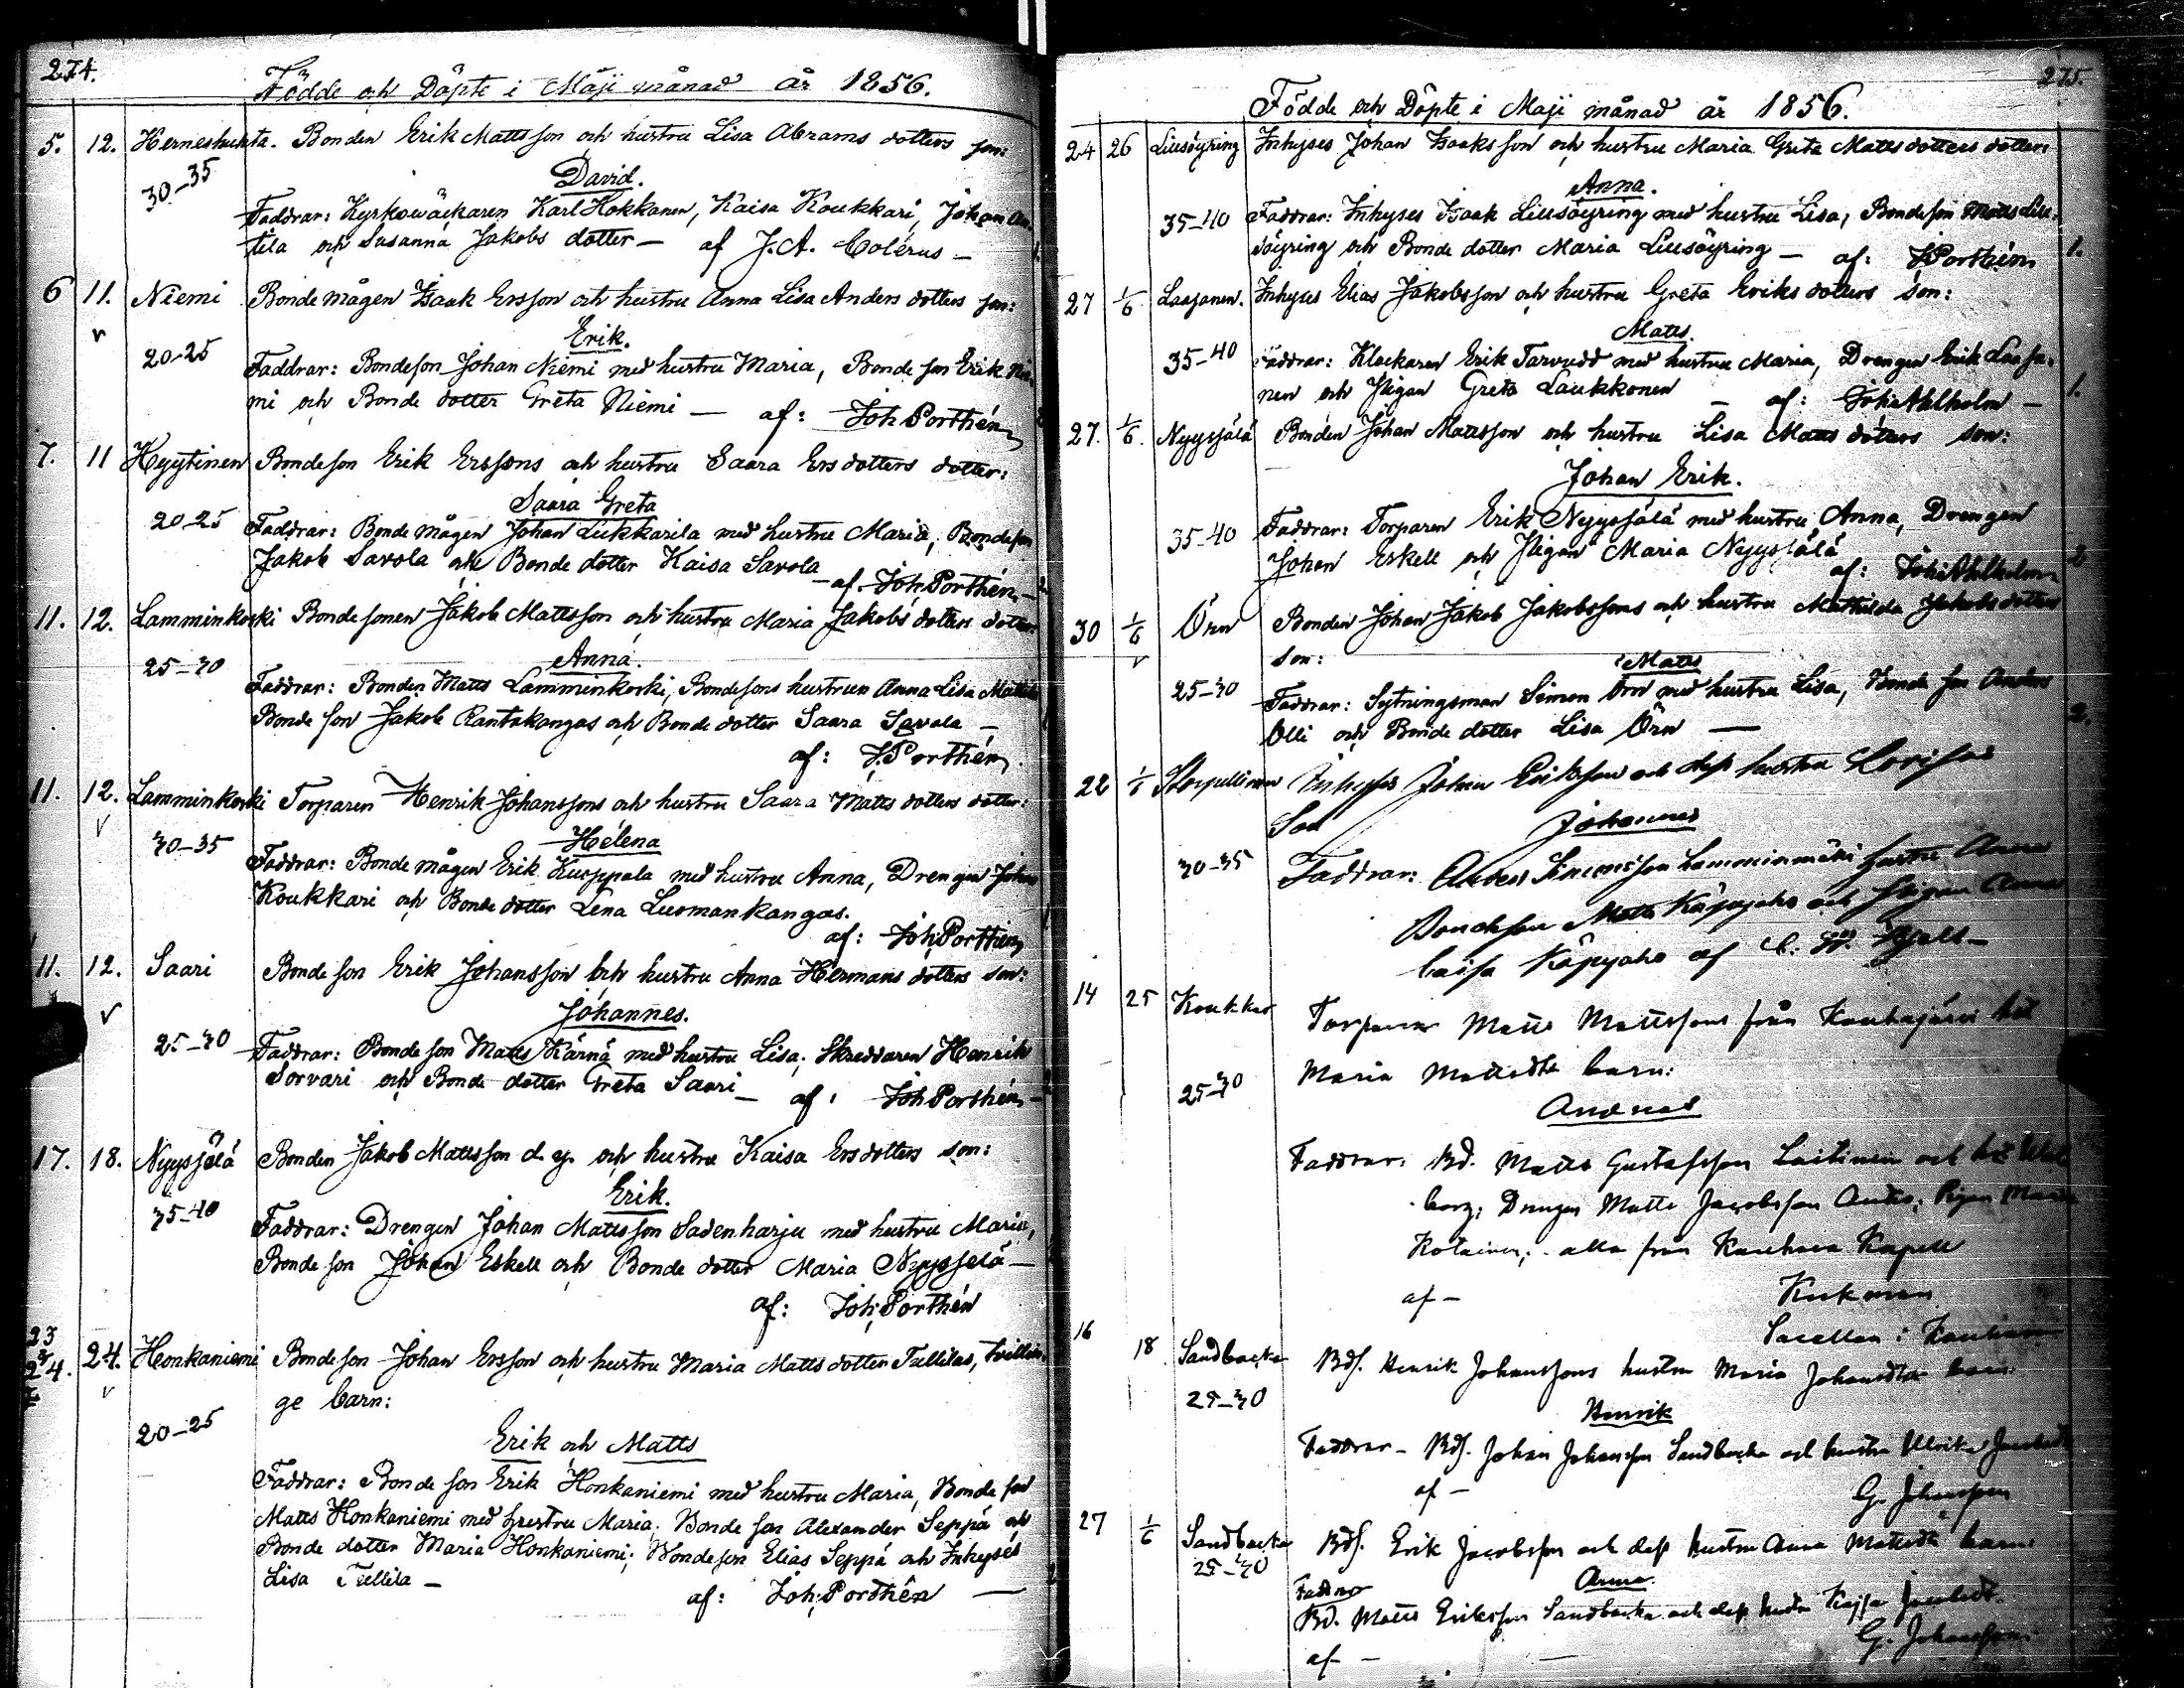 274.
Födde och Döpte i Maji månad år 1856.
5. 12. Herneshuhta. Bonden Erik Mattsson och hustru Lisa Abrams dotters son:
David.
30-35
Faddrar: Kyrkowäckaren Karl Hokkanen, Kaisa Koukkari, Johan An-
tila och Susanna Jakobs dotter — af J. A. Colérus —
6 11. Niemi Bonde mågen Isaak Ersson och hustru Anna Lisa Anders dotters son:
Erik.
20-25
Faddrar: Bondeson Johan Niemi med hustru Maria, Bonde son Erik Nie-
mi och Bonde dotter Greta Niemi — af: Joh. Porthén
7. 11 Hyytinen Bondeson Erik Erssons och hustru Saara Ers dotters dotter:
Saara Greta
20-25
Faddrar: Bonde mågen Johan Lukkarila med hustru Maria, Bondeson
Jakob Savola och Bonde dotter Kaisa Savola — af Joh. Porthén —
11. 12. Lamminkoski Bondesonen Jakob Mattsson och hustru Maria Jakobs dotters dotter
Anna.
25-30
Faddrar: Bonden Matts Lamminkoski, Bondesons hustrun Anna Lisa
Bonde son Jakob Rantakangas och Bonde dotter Saara Savola —
af: J. Porthén
11. 12. Lamminkoski Torparen Henrik Johanssons och hustru Saara Matts dotters dotter:
Helena
30-35
Faddrar: Bonde mågen Erik Kurppala med hustru Anna, Drengen Johan
Koukkari och Bonde dotter Lena Luomankangas.
af: Joh. Porthén
11. 12. Saari Bonde son Erik Johansson och hustru Anna Hermans dotters son:
Johannes.
25-30
Faddrar: Bonde son Matts Kärnä med hustru Lisa; Skreddaren Henrik
Sorvari och Bonde dotter Greta Saari — af: Joh. Porthén —
17. 18. Nyysjälä Bonden Jakob Mattsson d. y. och hustru Kaisa Ers dotters son:
Erik.
35-40
Faddrar: Drengen Johan Mattsson Sadenharju med hustru Maria,
Bonde son Johan Eskell och Bonde dotter Maria Nyysjelä —
af: Joh. Porthén
23 24. 24. Honkaniemi Bondeson Johan Ersson och hustru Maria Matts dotter Tullilas, tvillin-
ge barn:
20-25
Erik och Matts
Faddrar: Bonde son Erik Honkaniemi med hustru Maria, Bonde son
Matts Honkaniemi med hustru Maria. Bonde son Alexander Seppä och
Bonde dotter Maria Honkaniemi; Bondeson Elias Seppä och Inhyses
Lisa Tullila —
af: Joh. Porthén —
275.
Födde och Döpte i Maji månad år 1856.
24 26 Liusöyring Inhyses Johan Isaksson och hustru Maria Greta Matts dotters dotter:
Anna.
35-40
Faddrar: Inhyses Isaak Liusöyring med hustru Lisa, Bondeson Matts Liu-
söyring och Bonde dotter Maria Liusöyring — af: J. Porthén 1.
27 1/6 Laajanen. Inhyses Elias Jakobsson och hustru Greta Eriks dotters son:
Matts.
35-40
Faddrar: Klockaren Erik Tarvudd med hustru Maria, Drengen Erik Laaja-
nen och Pigan Greta Laukkonen — af: Joh. Ahlholm — 1.
27. 1/6. Nyysjälä Bonden Johan Mattsson och hustru Lisa Matts dotters son:
Johan Erik.
35-40
Faddrar: Torparen Erik Nyysjälä med hustru Anna, Drengen
Johan Eskell och Pigan Maria Nyysjälä
af: Joh. Ahlholm 2
30 1/6 Örn Bonden Johan Jakob Jakobssons och hustru Mathilda Jakobs dotters
son: Matts
25-30
Faddrar: Sytningsman Simon Örn med hustru Lisa, Bonde son Anders
Olli och Bonde dotter Lisa Örn — 2.
22 1/6 Inhyses Johan Eriksson och dess hustru Lovisas
Son Johannes
30-35
Faddrar: Anders Simonsson Lamminmäki hustru Anna
Bondeson Matts Käpyaho och Pigan Anna
Caisa Käpyaho af C. G. Hjelt —
14 25 Koukkar Torparen Matts Mattssons från Kauhajärvi
Maria Mattsdtr barn:
25-30
Andreas
Faddrar: Bd. Matts Gustafsson Laitinen och
borg; Drengen Matts Jacobsson Antio; Pigan Maria
Kotainen; alla från Kauhava Kapell
af —
Sacellan i Kauhava
16 18 Sandbacka Bds. Henrik Johanssons hustru Maria Johansdtr barn:
25-30
Henrik
Faddrar — Bds. Johan Johansson Sandbacka och hustru Ulrika
af — G. Johansson
27 1/6 Sandbacka Bds. Erik Jacobsson och dess hustru Anna Mattsdtr barn:
25-30
Anna.
Faddrar
Bd. Matts Eriksson Sandbacka och dess hustru Kajsa Jacobsdt.
af — G. Johansson